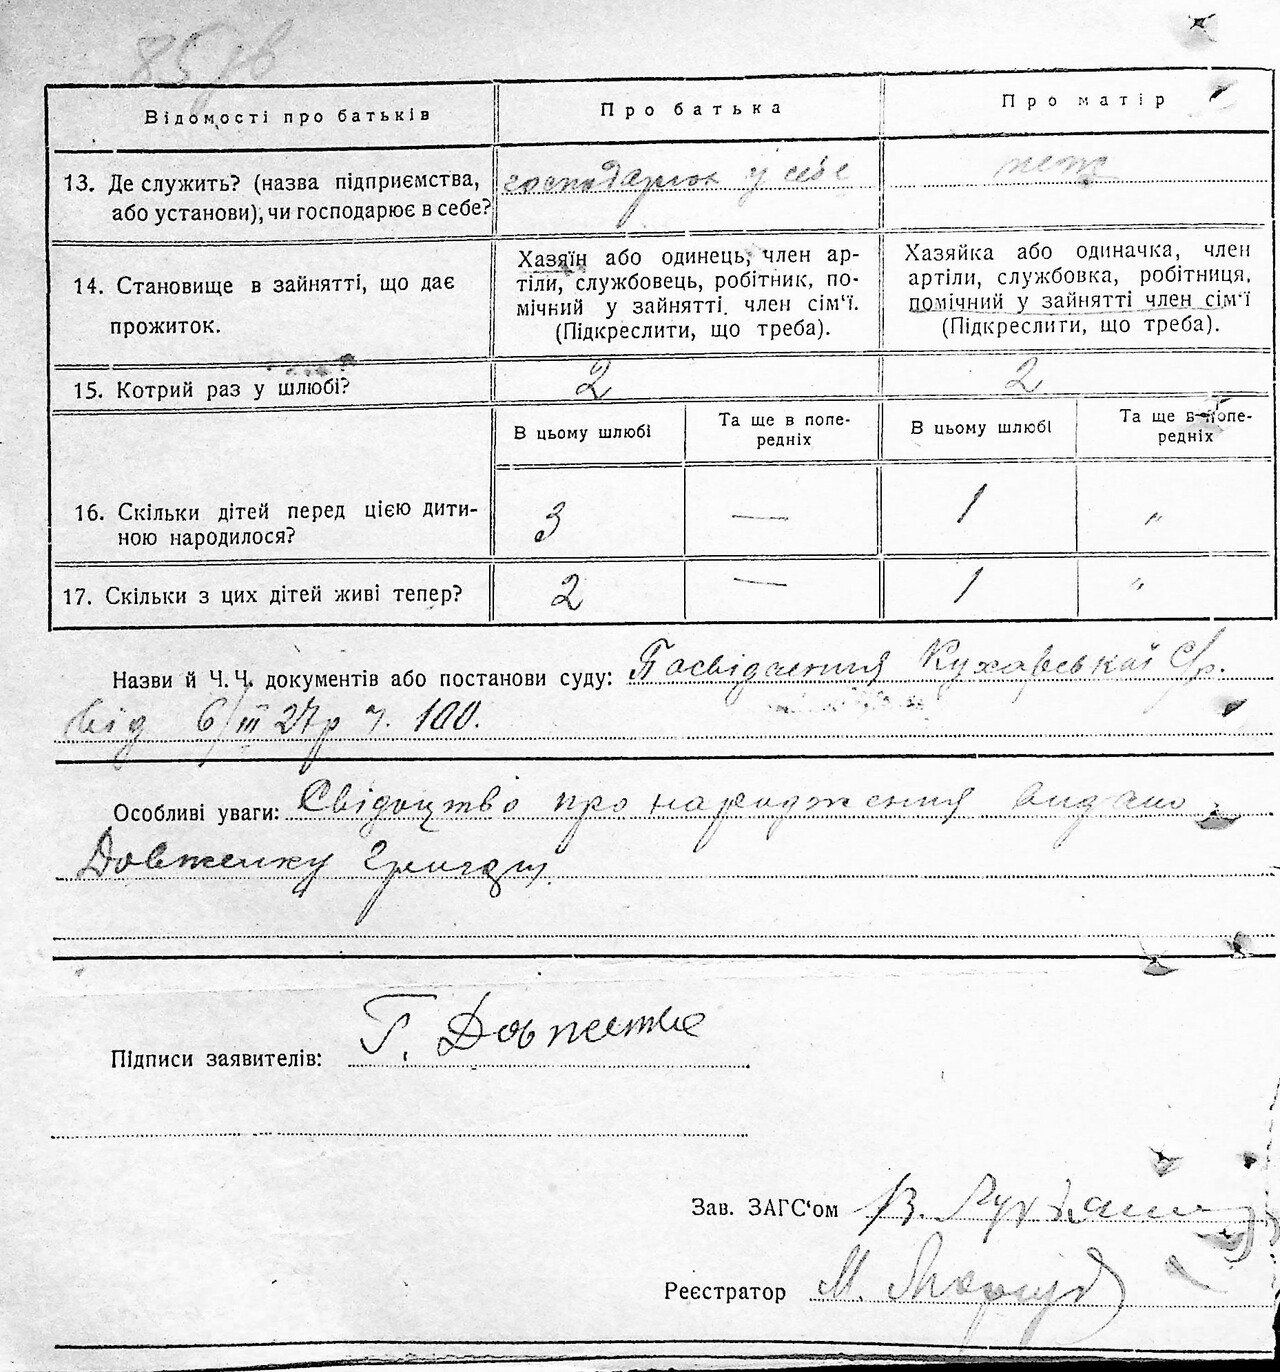 85 зв
Відомості про батьків
Про батька
Про матір
13. Де служить? (назва підприємства,
або установи), чи господарює в себе?
господарює у себе
14. Становище в зайнятті, що дає
прожиток.
Хазяїн або одинець, член ар-
тіли, службовець, робітник, по-
мічний у зайнятті член сім'ї.
(Підкреслити, що треба).
Хазяйка або одиначка, член
артіли, службовка, робітниця,
помічний у зайнятті член сім'ї
(Підкреслити, що треба).
15. Котрий раз у шлюбі?
2
2
В цьому шлюбі
Та ще в попе-
редніх
В цьому шлюбі
Та ще в попе-
редніх
16. Скільки дітей перед цією дити-
ною народилося?
3 — 1 "
17. Скільки з цих дітей живі тепер?
2 — 1 "
Назви й Ч.Ч. документів або постанови суду: Посвідчення Кухарської С/р.
від 6/III 27р ч. 100.
Особливі уваги: Свідоцтво про народження видано
Довженку Григор.
Підписи заявителів: Г. Довженко
Зав. ЗАГС'ом В.
Реєстратор М.